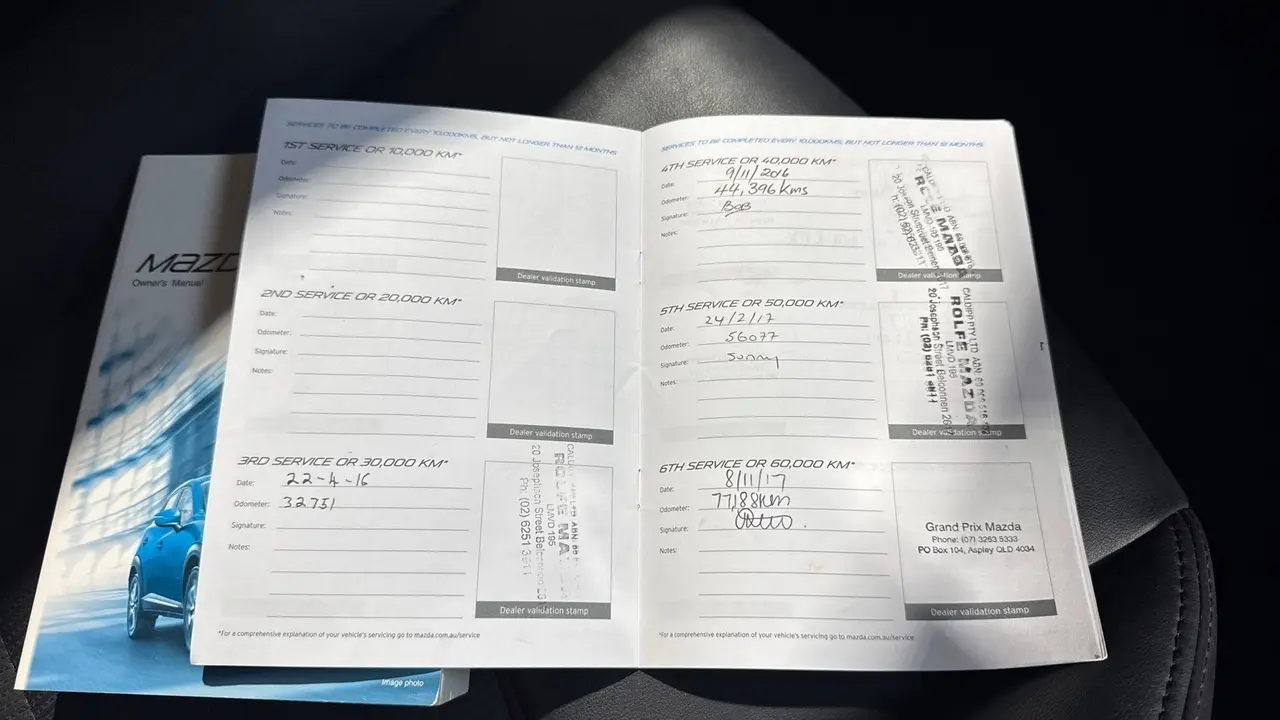 mazD
Owner's Manual
SERVICES TO BE COMPLETED EVERY 10,000KMS, BUT NOT LONGER THAN 12 MONTHS
1ST SERVICE OR 10,000 KM*
Date:
Odometer:
Signature:
Notes:
Dealer validation stamp
2ND SERVICE OR 20,000 KM*
Date:
Odometer:
Signature:
Notes:
Dealer validation stamp
3RD SERVICE OR 30,000 KM*
Date: 22-4-16
Odometer: 32751
Signature:
Notes:
CALDIPP PTY LTD ABN:
ROLFE MA
LMVD 195
20 Josephson Street Belconnen
Ph: (02) 6251
Dealer validation stamp
*For a comprehensive explanation of your vehicle's servicing go to mazda.com.au/service
SERVICES TO BE COMPLETED EVERY 10,000KMS, BUT NOT LONGER THAN 12 MONTHS
4TH SERVICE OR 40,000 KM*
Date: 9/11/2016
Odometer: 44,396 kms
Signature: Bob
Notes:
ROLFE MAZDA
LMVD 195
Dealer validation stamp
5TH SERVICE OR 50,000 KM*
Date: 24/2/17
Odometer: 56077
Signature: Sonny
Notes:
CALDIPP PTY LTD ABN:
ROLFE MAZDA
LMVD 195
20 Josephson Street Belconnen
Ph: (02)
Dealer validation stamp
6TH SERVICE OR 60,000 KM*
Date: 8/11/17
Odometer: 77,188km
Signature:
Notes:
Grand Prix Mazda
Phone: (07) 3263 5333
PO Box 104, Aspley QLD 4034
Dealer validation stamp
*For a comprehensive explanation of your vehicle's servicing go to mazda.com.au/service
Image photo